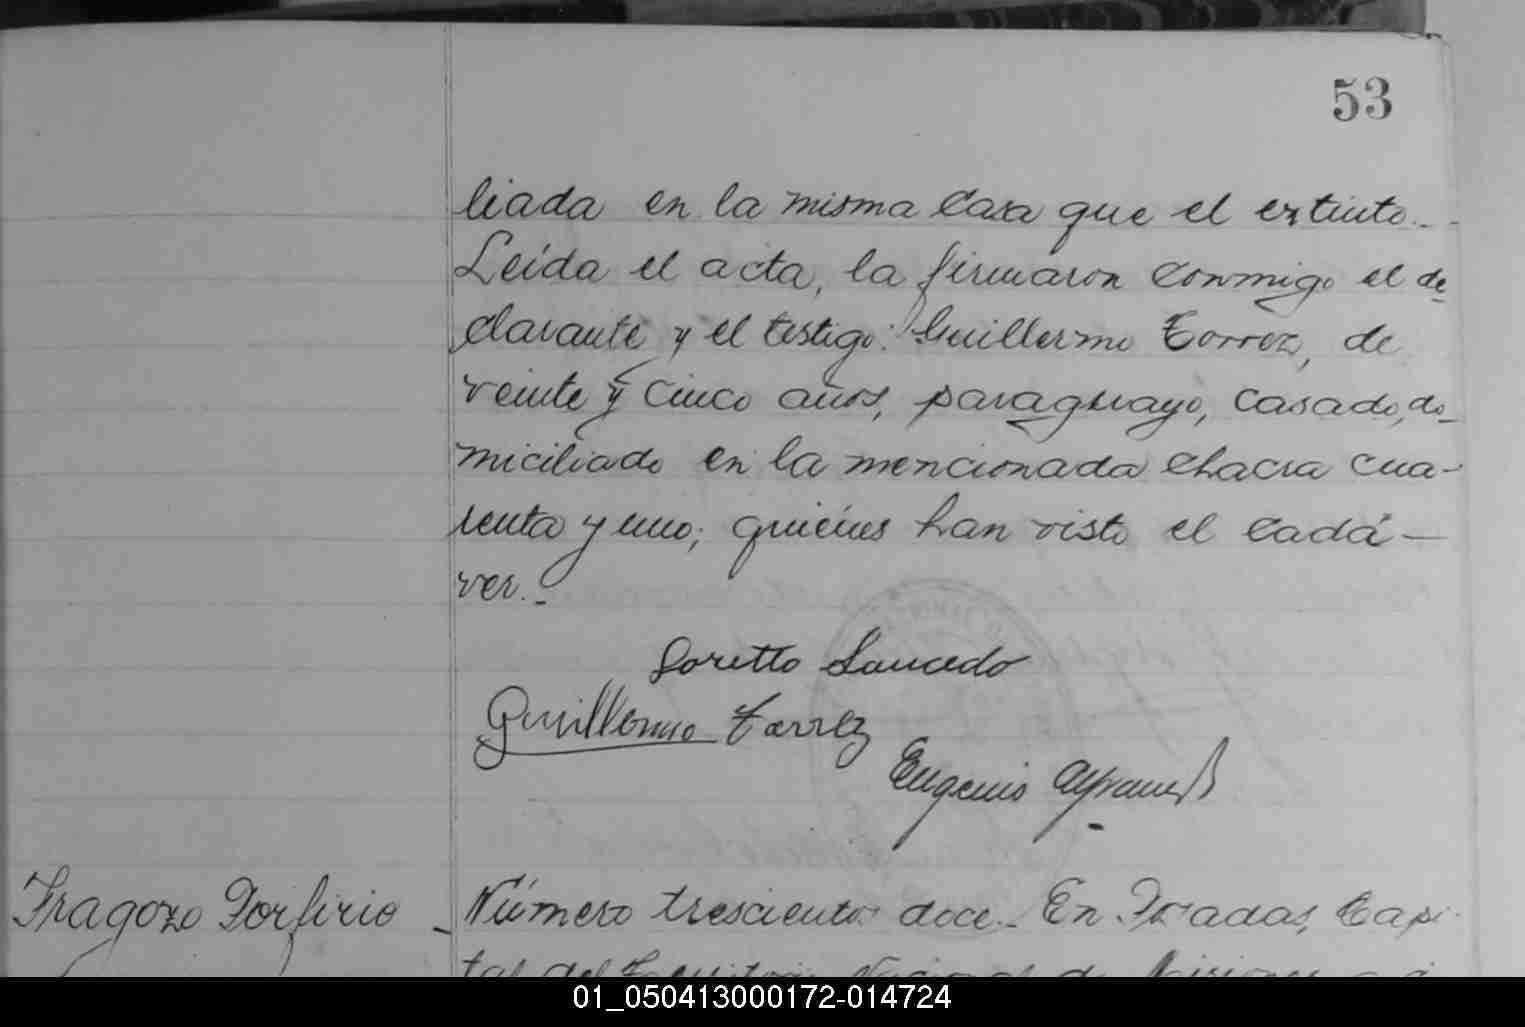 53
liada en la misma casa que el extinto._
Leída el acta, la firmaron conmigo el de
clarante y el testigo: Guillermo Torrez, de
veinte y cinco años, paraguayo, casado, do_
miciliado en la mencionada chacra cua-
renta y uno; quienes han visto el cadá-
ver._
Loretto Saucedo
Guillermo Torrez
Eugenio
Fragozo Porfirio _ Número trescientos doce._ En Posadas, Capi
tal del Territorio Nacional de Misiones a
01_050413000172-014724